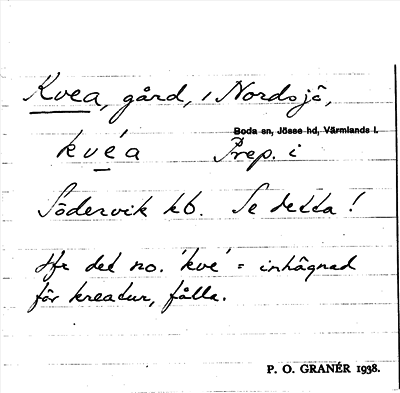 Kvea, gård, i Nordsjö,
Boda sn, Jösse hd, Värmlands l.
kvéa Prep. i
Södervik kb. Se detta!
Jfr det no. 'kve' = inhägnad
för kreatur, fålla.
P. O. GRANÉR 1938.